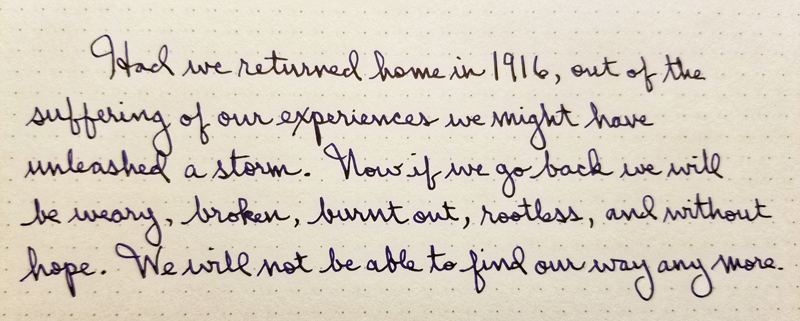 Had we returned home in 1916, out of the
suffering of our experiences we might have
unleashed a storm. Now if we go back we will
be weary, broken, burnt out, rootless, and without
hope. We will not be able to find our way any more.